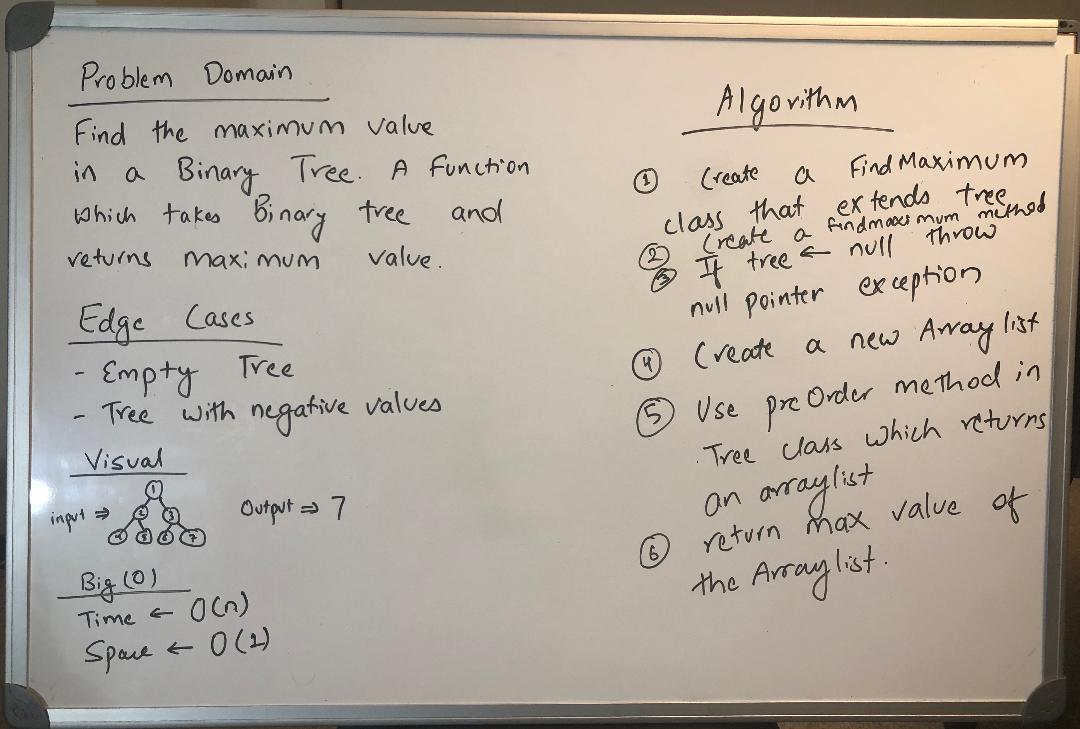 Problem Domain
Find the maximum value
in a Binary Tree. A Function
which takes Binary tree and
returns maximum value.
Edge Cases
- Empty Tree
- Tree with negative values
Visual
1
input ⇒ 2 3 Output ⇒ 7
4 5 6 7
Big (O)
Time ← O(n)
Space ← O(1)
Algorithm
① Create a FindMaximum
class that extends tree
② Create a findmaximum method
③ If tree ← null throw
null pointer exception
④ Create a new Array list
⑤ Use preOrder method in
Tree class which returns
an arraylist
⑥ return max value of
the Array list.